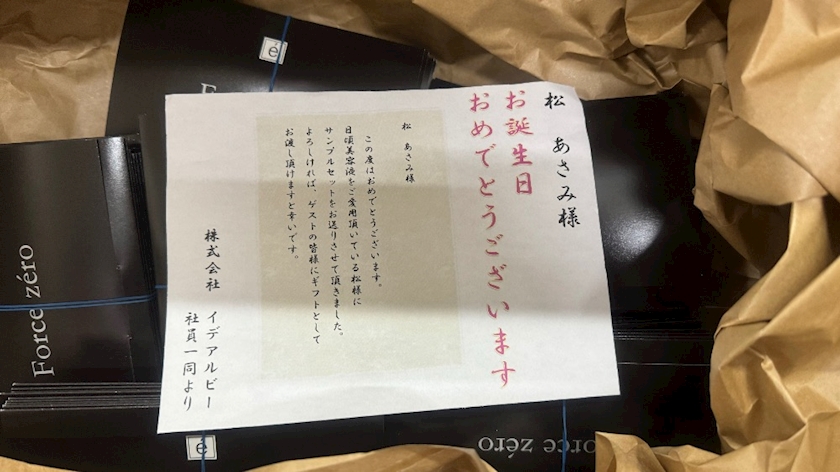 松　あさみ様
お誕生日
おめでとうございます
松　あさみ様
この度はおめでとうございます。
日頃美容液をご愛用頂いている松様に
サンプルセットをお送りさせて頂きました。
よろしければ、ゲストの皆様にギフトとして
お渡し頂けますと幸いです。
株式会社　イデアルビー
社員一同より
Force zéro
é
F
é
orce zéro